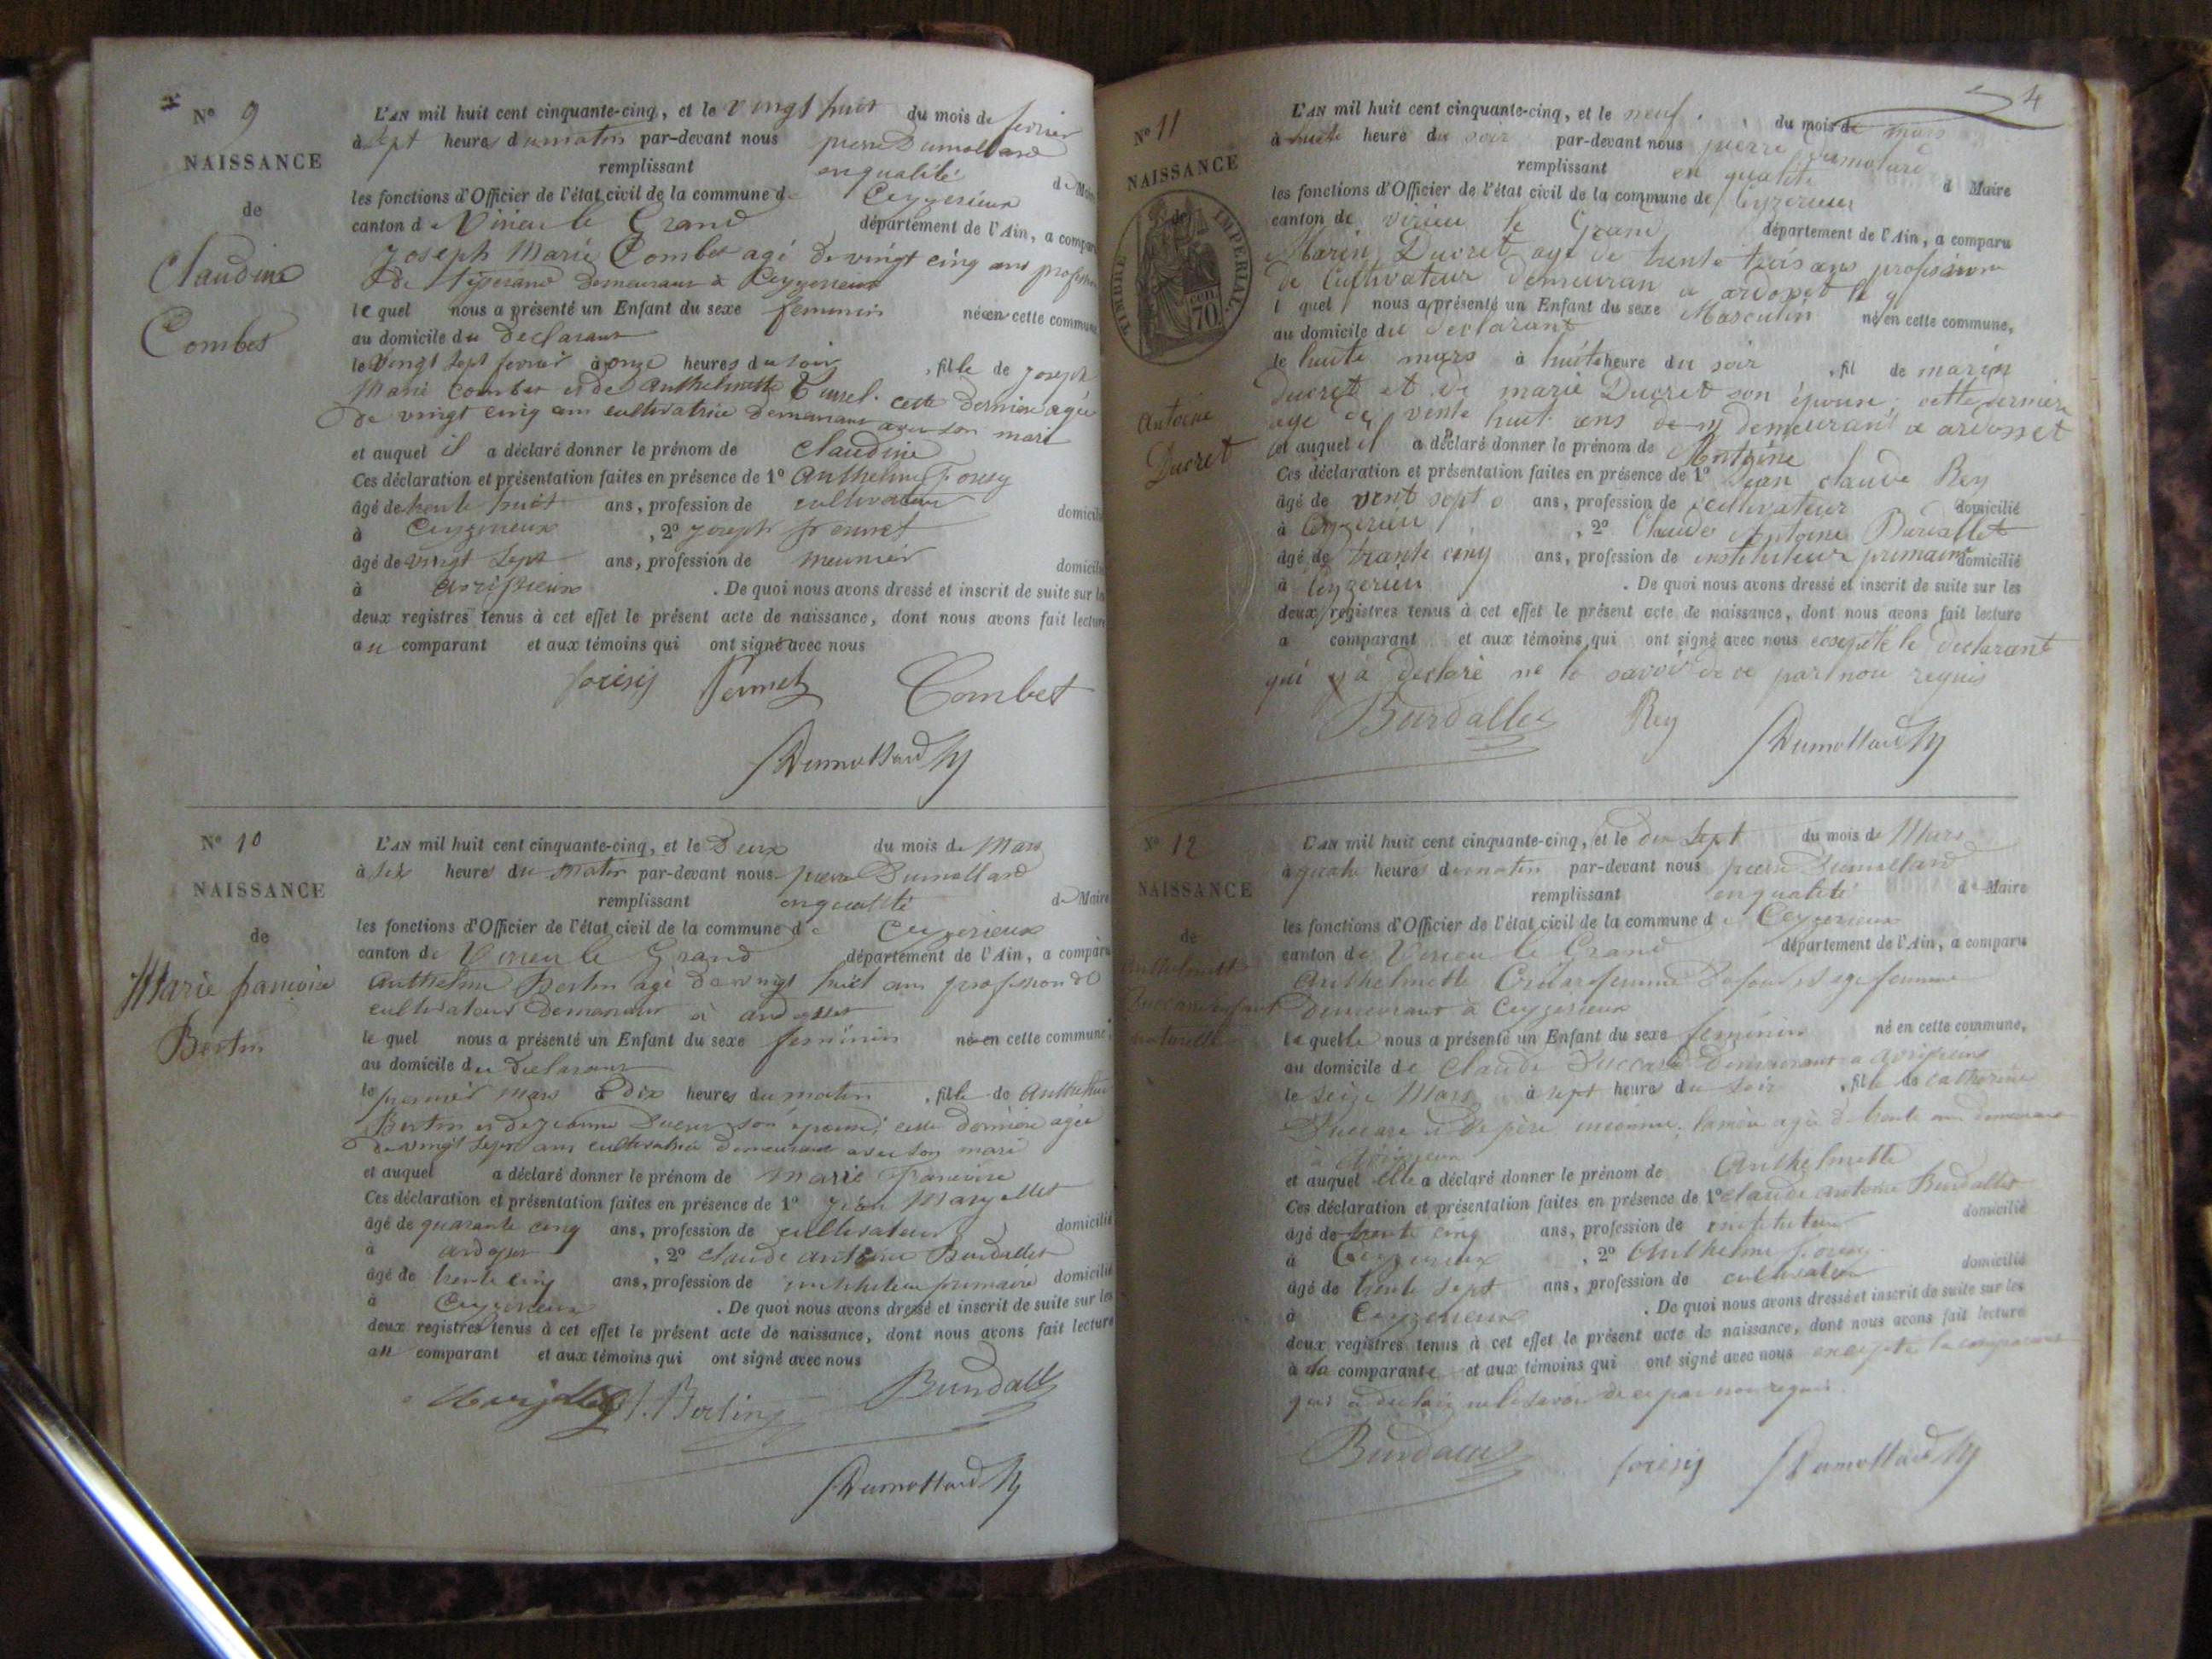 N° 9
NAISSANCE
de
Claudine
Combet
L'AN mil huit cent cinquante-cinq, et le vingt huit du mois de fevrier
à sept heures du matin par-devant nous pierre Dumollard
remplissant en qualité de Maire
les fonctions d'Officier de l'état civil de la commune de Ceyzerieux
canton de Virieu le Grand département de l'Ain, a comparu
Joseph Marie Combet agé de vingt cinq ans profession
de tisserand demeurant à Ceyzerieux
le quel nous a présenté un Enfant du sexe feminin né en cette commune
au domicile du declarant
le vingt sept fevrier à onze heures du soir, fille de joseph
Marie Combet et de Anthelmette cette derniere agée
de vingt cinq ans cultivatrice demeurant avec son mari
et auquel il a déclaré donner le prénom de Claudine
Ces déclaration et présentation faites en présence de 1° Anthelme
âgé de trente huit ans, profession de cultivateur domicilié
à Ceyzerieux, 2° joseph
âgé de vingt sept ans, profession de meunier domicilié
à avrissieux. De quoi nous avons dressé et inscrit de suite sur les
deux registres tenus à cet effet le présent acte de naissance, dont nous avons fait lecture
au comparant et aux témoins qui ont signé avec nous
Combet
Dumollard
N° 10
NAISSANCE
de
Marie francoise
Bertin
L'AN mil huit cent cinquante-cinq, et le Deux du mois de Mars
à six heures du matin par-devant nous pierre Dumollard
remplissant en qualité de Maire
les fonctions d'Officier de l'état civil de la commune de Ceyzerieux
canton de Virieu le Grand département de l'Ain, a comparu
Anthelme Bertin agé de vingt huit ans profession de
cultivateur demeurant à ardosset
le quel nous a présenté un Enfant du sexe feminin né en cette commune,
au domicile du declarant
le premier mars à dix heures du matin, fille de Anthelme
Bertin et de jeanne son épouse; cette derniere agée
de vingt sept ans cultivatrice demeurant avec son mari
et auquel a déclaré donner le prénom de Marie francoise
Ces déclaration et présentation faites en présence de 1° jean Marjollet
âgé de quarante cinq ans, profession de cultivateur domicilié
à ardosset, 2° claude antoine Burdallet
âgé de trente cinq ans, profession de instituteur primaire domicilié
à Ceyzerieux. De quoi nous avons dressé et inscrit de suite sur les
deux registres tenus à cet effet le présent acte de naissance, dont nous avons fait lecture
au comparant et aux témoins qui ont signé avec nous
Marjollet Bertin Burdallet
Dumollard
4
N° 11
NAISSANCE
de
TIMBRE IMPERIAL
70
Antoine
Ducret
L'AN mil huit cent cinquante-cinq, et le neuf du mois de mars
à huite heure du soir par-devant nous pierre Dumolard
remplissant en qualité d Maire
les fonctions d'Officier de l'état civil de la commune de Ceyzerieu
canton de virieu le Grand département de l'Ain, a comparu
Marin Ducret agé de trente trois ans profession
de Cultivateur demeuran a ardosset le q
l quel nous a présenté un Enfant du sexe Masculin né en cette commune,
au domicile du declarant
le huite mars à huite heure du soir, fil de marin
ducret et de marie Ducret son épouse; cette derniere
age de vinte huit ans demeurant a ardosset
et auquel il a déclaré donner le prénom de Antoine
Ces déclaration et présentation faites en présence de 1° Jean claude Rey
âgé de vent sept ans, profession de cultivateur domicilié
à Ceyzerieu, 2° Claude Antoine Burdallet
âgé de trante cinq ans, profession de instituteur primaire domicilié
à Ceyzerieu. De quoi nous avons dressé et inscrit de suite sur les
deux registres tenus à cet effet le présent acte de naissance, dont nous avons fait lecture
a comparant et aux témoins qui ont signé avec nous le declarant
qui a declaré ne le savoir de ce par nou requis
Burdallet Rey Dumollard
N° 12
NAISSANCE
de
Anthelmette
naturelle
L'AN mil huit cent cinquante-cinq, et le dix sept du mois de Mars
à quatre heures du matin par-devant nous pierre Dumollard
remplissant en qualité de Maire
les fonctions d'Officier de l'état civil de la commune de Ceyzerieux
canton de Virieu le Grand département de l'Ain, a comparu
Anthelmette femme sage femme
demeurant à Ceyzerieux
la quelle nous a présenté un Enfant du sexe feminin né en cette commune,
au domicile de Claude demeurant a avrissieux
le seize Mars à sept heures du soir, fille de catherine
et de père inconnu; la mère agée de trente ans demeurant
à
et auquel elle a déclaré donner le prénom de Anthelmette
Ces déclaration et présentation faites en présence de 1° claude antoine Burdallet
âgé de trente cinq ans, profession de instituteur domicilié
à Ceyzerieux, 2° Anthelme
âgé de trente sept ans, profession de cultivateur domicilié
à Ceyzerieux. De quoi nous avons dressé et inscrit de suite sur les
deux registres tenus à cet effet le présent acte de naissance, dont nous avons fait lecture
à la comparante et aux témoins qui ont signé avec nous excepté la comparante
qui a declaré ne le savoir de ce par nou requis.
Burdallet Dumollard